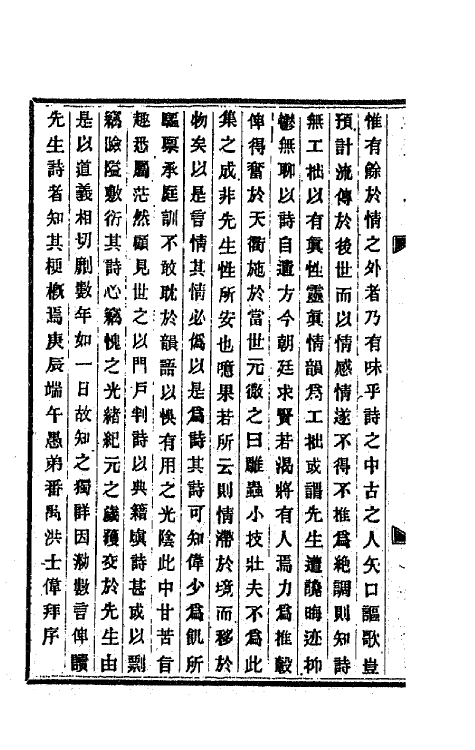 惟有餘於情之外者乃有味乎詩之中古之人矢口謳歌豈
預計流傳於後世而以情感情遂不得不推爲絶調則知詩
無工拙以有眞性靈眞情韻爲工拙或謂先生遭讒晦迹抑
鬱無聊以詩自遣方今朝廷求賢若渴將有人焉力爲推轂
俾得奮於天衢施於當世元微之曰雕蟲小技壯夫不爲此
集之成非先生性所安也噫果若所云則情滯於境而移於
物矣以是言情其情必僞以是爲詩其詩可知偉少爲飢所
驅稟承庭訓不敢耽於韻語以悞有用之光陰此中甘苦旨
趣悉屬茫然顧見世之以門戶判詩以典籍塡詩甚或以剽
竊險隘敷衍其詩心竊愧之光緖紀元之歲獲交於先生由
是以道義相切劘數年如一日故知之獨詳因泐數言俾讀
先生詩者知其梗槪焉庚辰端午愚弟番禺洪士偉拜序